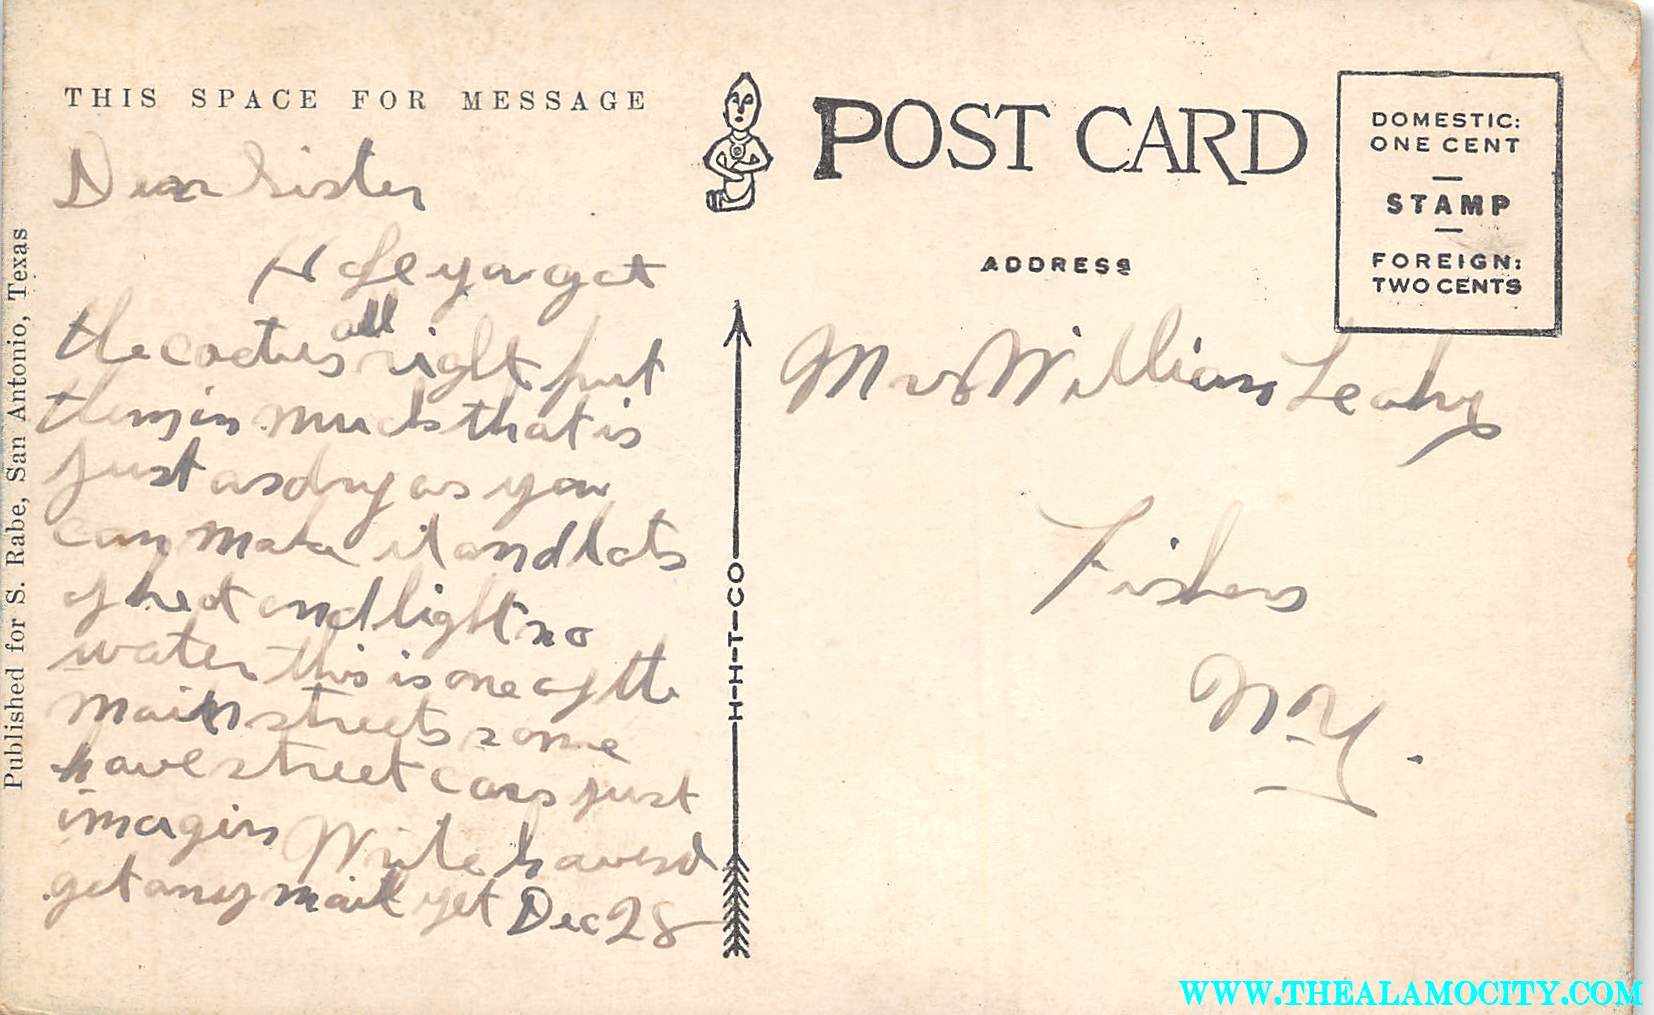 THIS SPACE FOR MESSAGE
Dear Sister
Hope you got
the cactus all right put
them in muck that is
just as dry as you
can make it and lots
of heat and light no
water this is one of the
main streets some
have street cars just
imagin Write havend
get any mail yet Dec 28
Published for S. Rabe, San Antonio, Texas
POST CARD
ADDRESS
DOMESTIC:
ONE CENT
STAMP
FOREIGN:
TWO CENTS
H-H-T-CO
Mrs William Leahy
N.Y.
WWW.THEALAMOCITY.COM